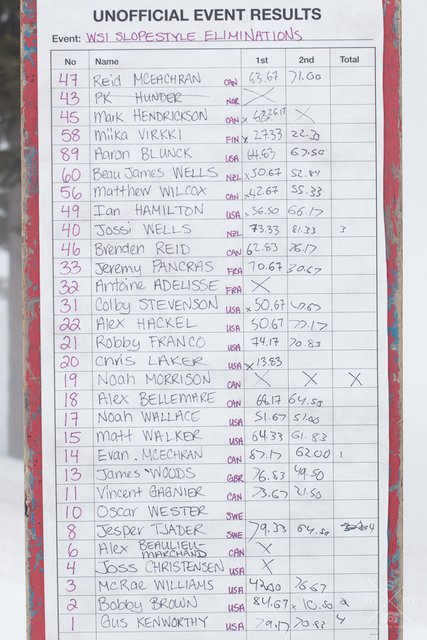 UNOFFICIAL EVENT RESULTS
Event: WSI SLOPESTYLE ELIMINATIONS
No Name 1st 2nd Total
47 Reid MCEACHRAN CAN 63.67 71.00
43 PK HUNDER NOR X
45 Mark HENDRICKSON CAN X
58 Miika VIRKKI FIN x 27.33 22.33
89 Aaron BLUNCK USA 64.63 67.50
60 Beau James WELLS NZL x 50.67 52.84
56 Matthew WILCOX CAN x 42.67 55.33
49 Ian HAMILTON USA x 36.50 66.17
40 Jossi WELLS NZL 73.33 81.33 3
46 Brenden REID CAN 62.83 76.17
33 Jeremy PANCRAS FRA 70.67 30.67
32 Antoine ADELISSE FRA X
31 Colby STEVENSON USA x 50.67
22 Alex HACKEL USA 50.67 77.17
21 Robby FRANCO USA 74.17 70.83
20 Chris LAKER USA x 13.83
19 Noah MORRISON CAN X X X
18 Alex BELLEMARE CAN 66.17 64.50
17 Noah WALLACE USA 51.67 51.00
15 Matt WALKER USA 64.33 61.83
14 Evan MCEACHRAN CAN 87.17 62.00 1
13 James WOODS GBR 76.83 49.50
11 Vincent GAGNIER CAN 73.67 21.50
10 Oscar WESTER SWE
8 Jesper TJADER SWE 79.33 64.50
6 Alex BEAULIEU-
MARCHAND CAN X
4 Joss CHRISTENSEN USA X
3 McRae WILLIAMS USA 42.00 76.67
2 Bobby BROWN USA 84.67 x 10.50 2
1 Gus KENWORTHY USA 79.17 70.83 4